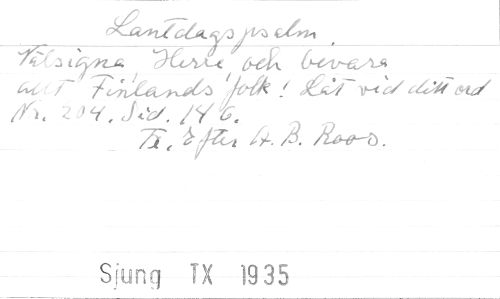 Lantdagspsalm
Välsigna, Herre, och bevara
allt Finlands folk! Låt vid ditt ord
Nr. 204. Sid. 146.
Tr. Efter A. B. Roos.
Sjung TX 1935